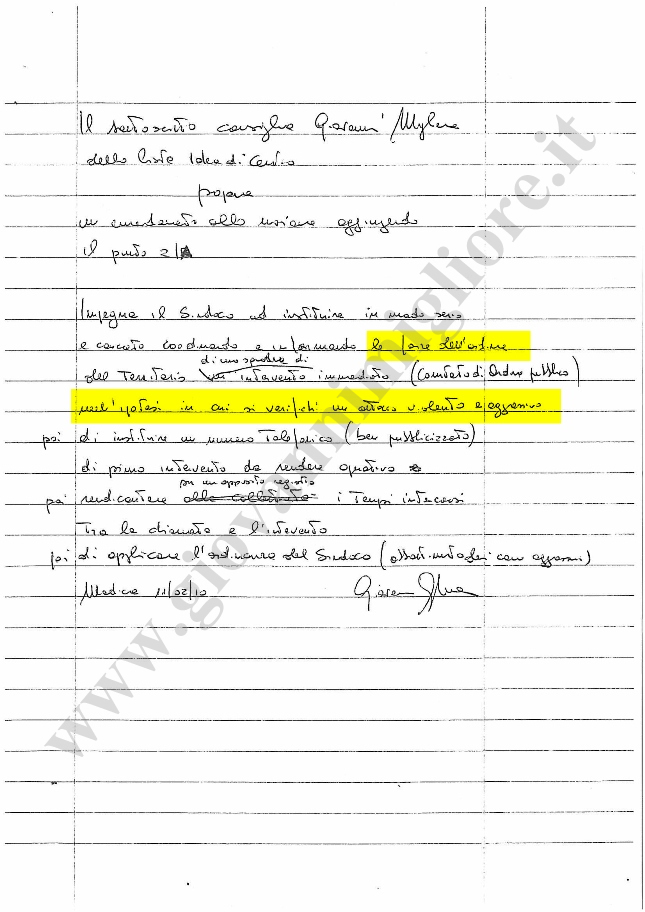 Il sottoscritto consigliere Giovanni Mgliore
della lista Idea di Centro
propone
un emendamento alla mozione aggiungendo
il punto 2/A
Impegna il Sindaco ad instituire in modo serio
e concreto coordinando e informando le forze dell'ordine
di una squadra di
del Territorio intervento immediato (Comitato di Ordine pubblico)
nell'ipotesi in cui si verifichi un attacco violento e aggressivo
poi di instituire un numero Telefonico (ben pubblicizzato)
di primo intervento da rendere operativo e
su un apposito registro
poi rendicontare alla collettività i Tempi intercorsi
Tra la chiamata e l'intervento
poi di applicare l'ordinanza del Sindaco (cani aggressivi)
Modica 11/02/10
www.giovannimigliore.it